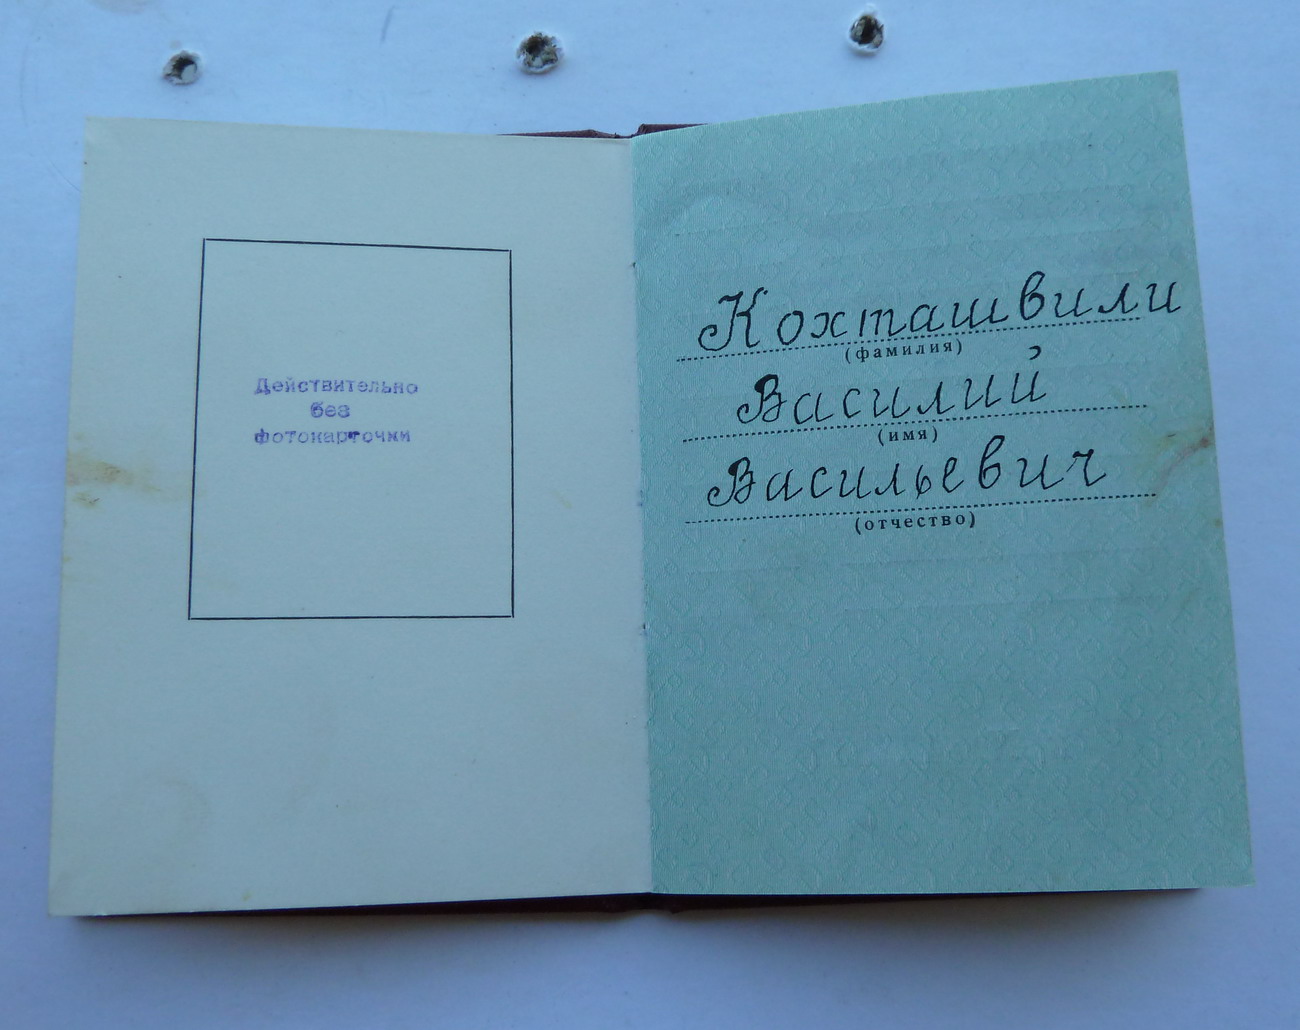 Действительно
без
фотокарточки
Кохташвили
(фамилия)
Василий
(имя)
Васильевич
(отчество)